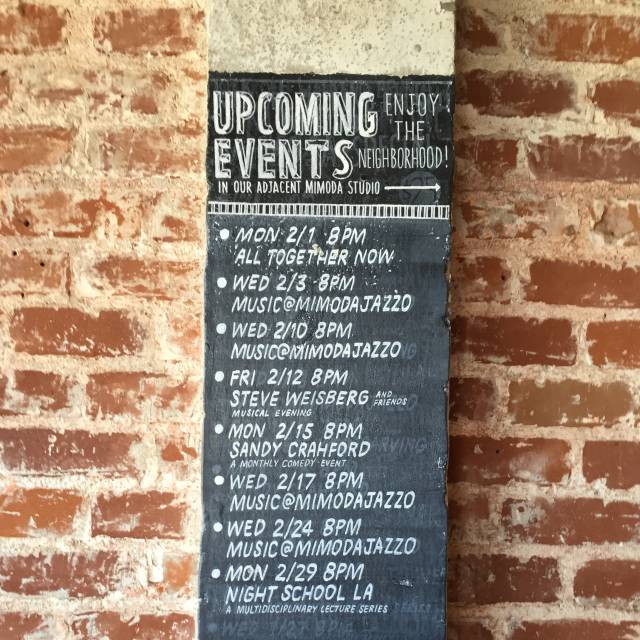 UPCOMING EVENTS
ENJOY THE NEIGHBORHOOD!
IN OUR ADJACENT MIMODA STUDIO
MON 2/1 8PM
ALL TOGETHER NOW
WED 2/3 8PM
MUSIC@MIMODAJAZZO
WED 2/10 8PM
MUSIC@MIMODAJAZZO
FRI 2/12 8PM
STEVE WEISBERG AND FRIENDS
MUSICAL EVENING
MON 2/15 8PM
SANDY CRAHFORD
A MONTHLY COMEDY EVENT
WED 2/17 8PM
MUSIC@MIMODAJAZZO
WED 2/24 8PM
MUSIC@MIMODAJAZZO
MON 2/29 8PM
NIGHT SCHOOL LA
A MULTIDISCIPLINARY LECTURE SERIES